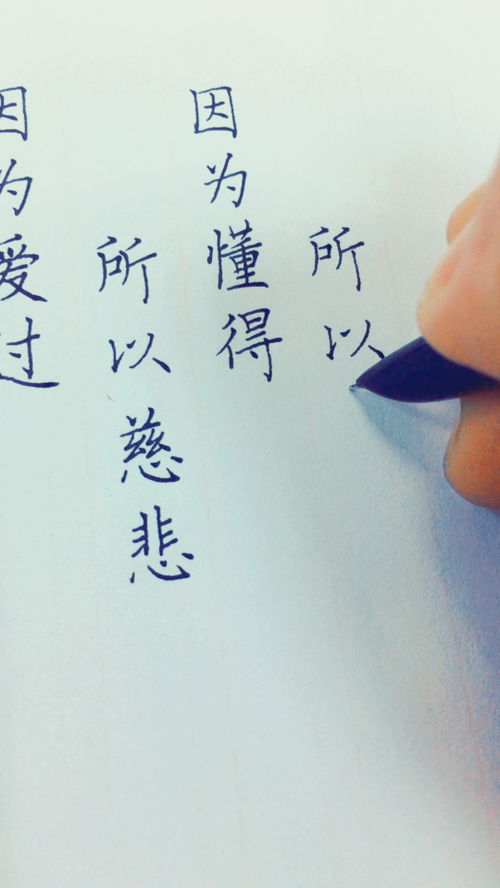 因为爱过
所以慈悲
因为懂得
所以